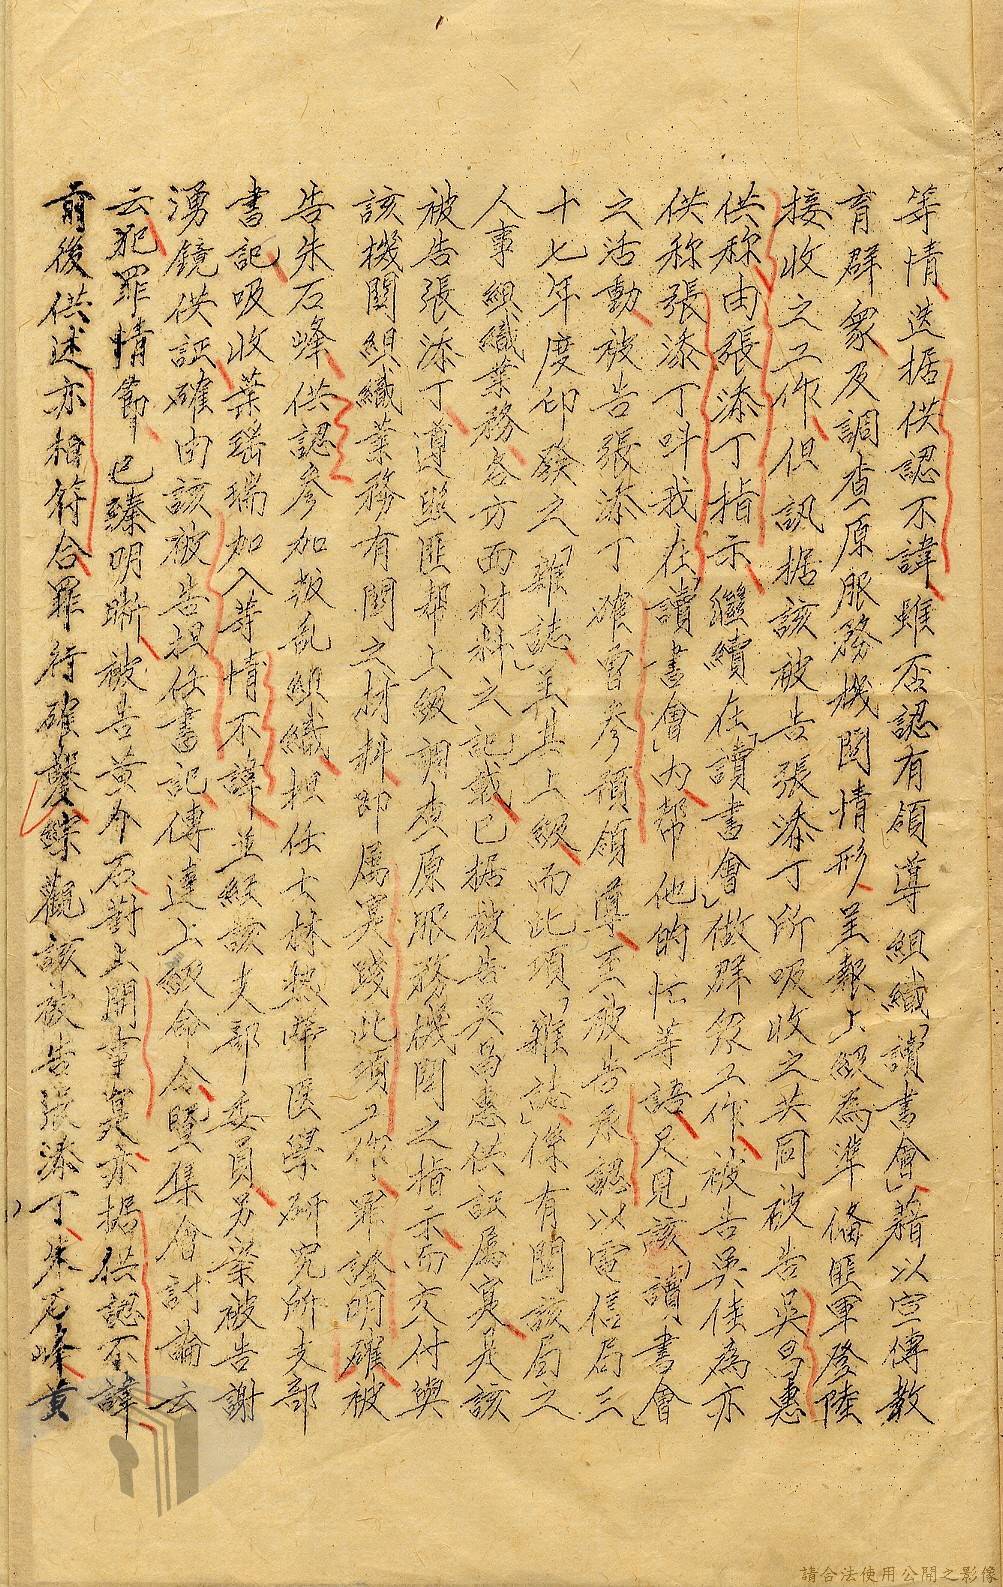 等情迭据供認不諱雖否認有領導組織「讀書會」藉以宣傳教
育群眾及調查原服務機関情形呈報上級為準備匪軍登陸
接收之工作但訊据該被告張添丁所吸收之共同被告吳昌惠
供称由張添丁指示繼續在「讀書會」做群眾工作被告吳佳為亦
供称張添丁呌我在「讀書會」内帮他的忙等語足見該「讀書會」
之活動被告張添丁確曾參預領導至被告承認以電信局三
十七年度印發之「雜誌」呈其上級而此項「雜誌」係有関該局之
人事組織業務各方面材料之記載已据被告吳昌惠供証属寔是該
被告張添丁遵照匪帮上級調查原服務機関之指示而交付與
該機関組織業務有関之材料即属実踐此項工作罪證明確被
告朱石峰供認參加叛乱組織担任士林热帶医學研究所支部
書記吸收葉瑶瑞加入等情不諱並經該支部委員另案被告謝
湧鏡供証確由該被告担任書記傳達上級命令暨集會討論云
云犯罪情節已臻明晰被告黄亦石對上開事寔亦据供認不諱
前後供述亦相符合罪行確鑿綜觀該被告張添丁朱石峰黄
請合法使用公開之影像